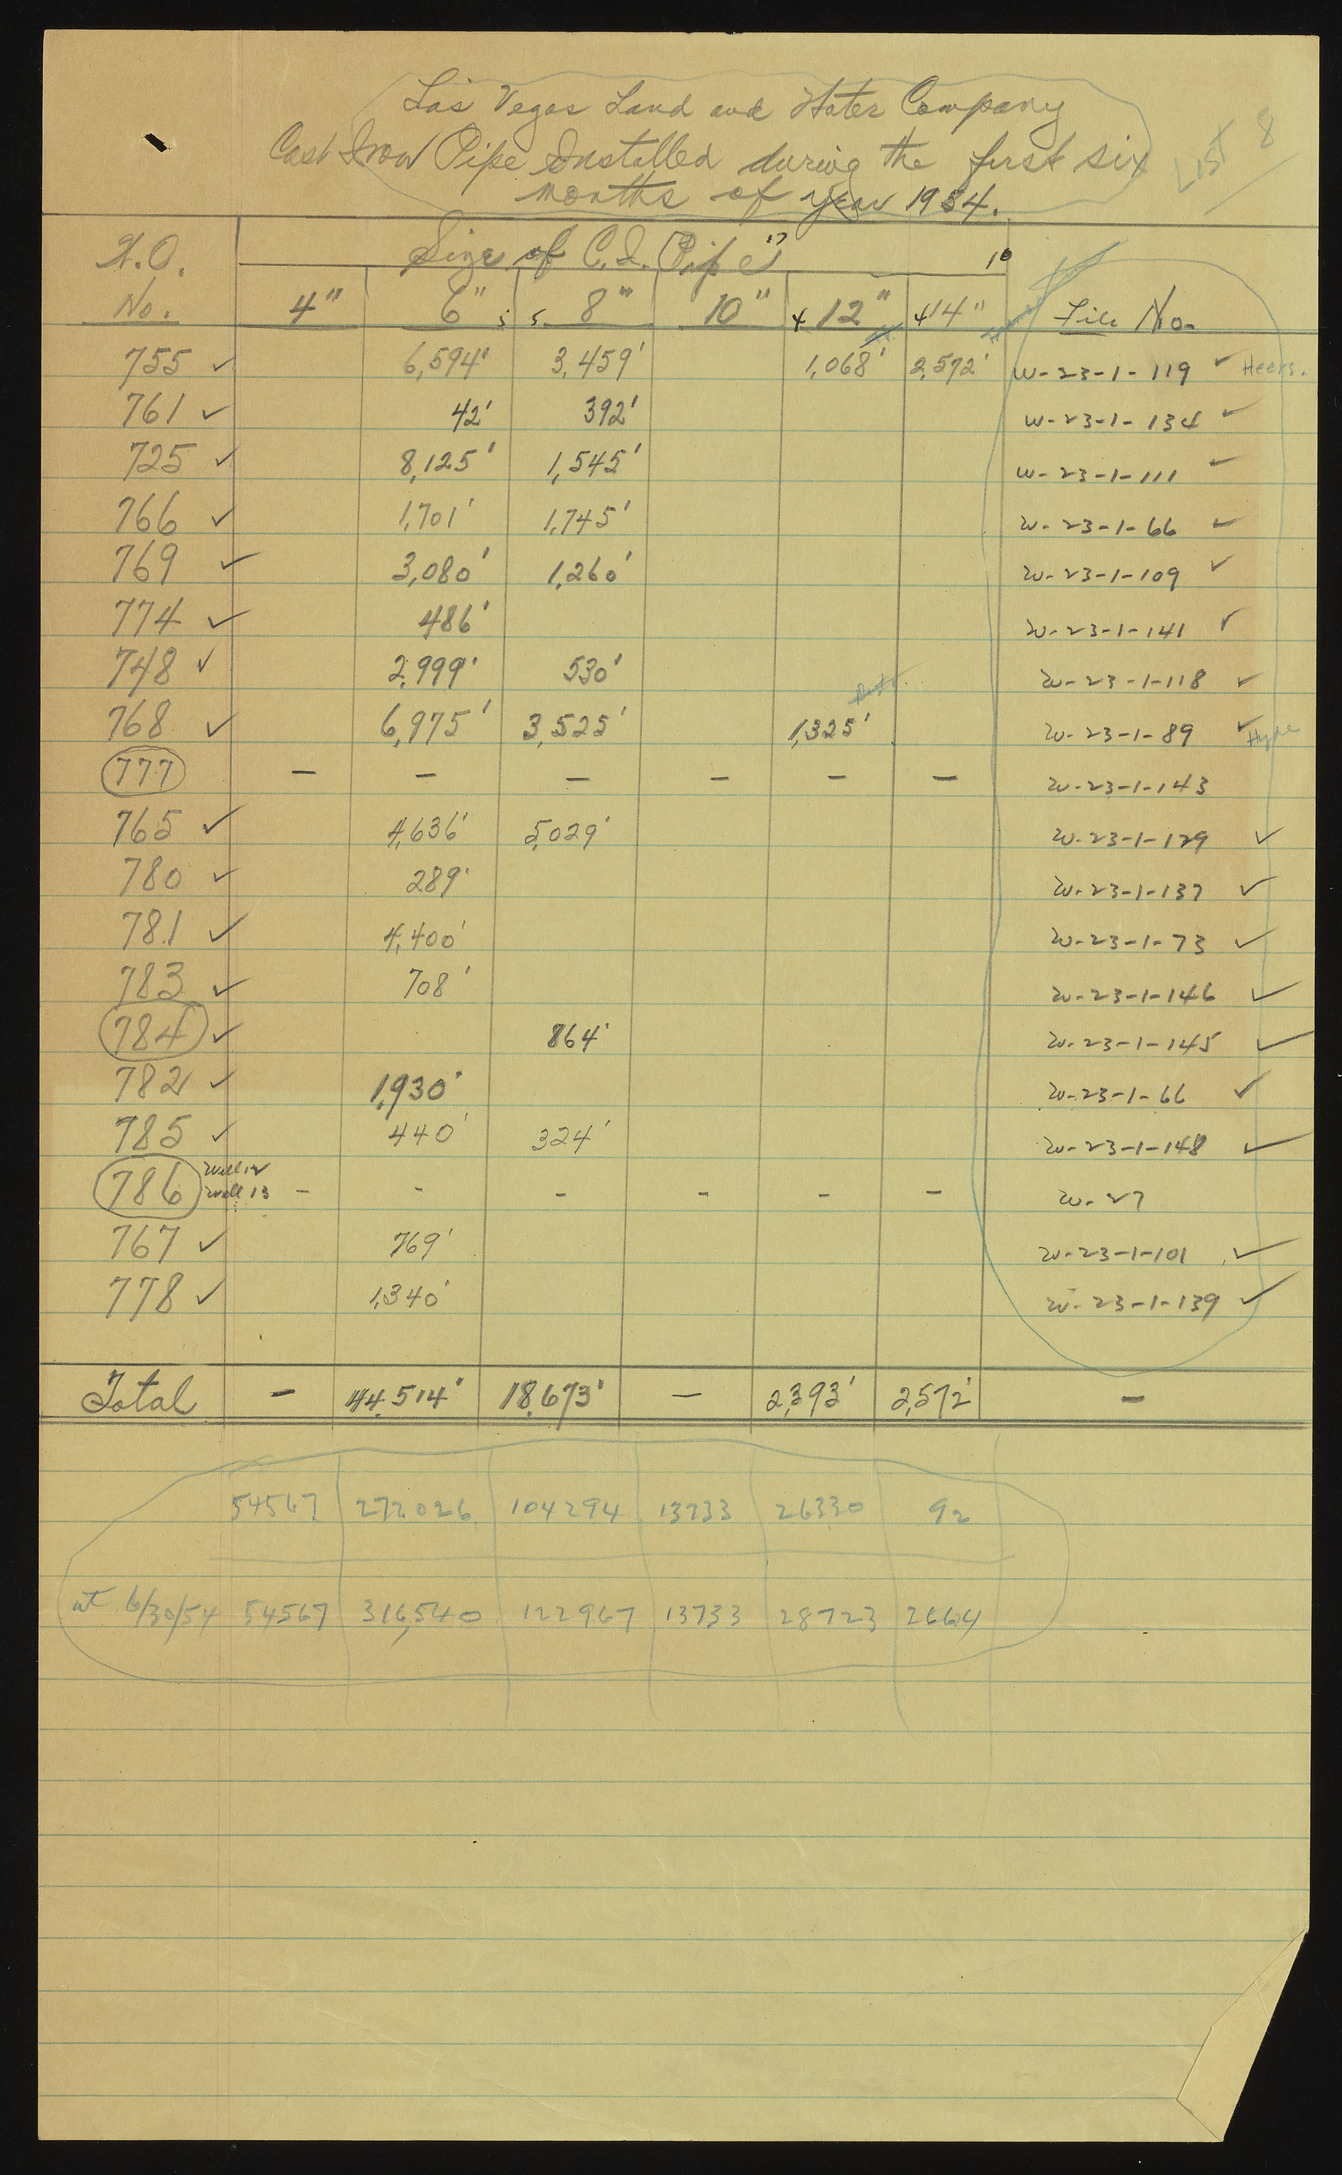 Las Vegas Land and Water Company
Cast Iron Pipe Installed during the first six
months of year 1954.
LIST 8
W.O. Size of C.I. Pipe
No. 4" 6" 8" 10" 12" 14" File No.
755 ✓ 6,594' 3,459' 1,068' 2,572' W-23-1-119 ✓ Heers.
761 ✓ 42' 392' W-23-1-134 ✓
725 ✓ 8,125' 1,545' W-23-1-111 ✓
766 ✓ 1,701' 1,745' W-23-1-66 ✓
769 ✓ 3,080' 1,260' W-23-1-109 ✓
774 ✓ 486' W-23-1-141 ✓
748 ✓ 2,999' 530' W-23-1-118 ✓
768 ✓ 6,975' 3,525' 1,325' W-23-1-89 ✓ Hyde
777 - - - - - - W-23-1-143
765 ✓ 4,636' 5,029' W-23-1-129 ✓
780 ✓ 289' W-23-1-137 ✓
781 ✓ 4,400' W-23-1-73 ✓
783 ✓ 708' W-23-1-146 ✓
784 ✓ 864' W-23-1-145 ✓
782 ✓ 1,930' W-23-1-66 ✓
785 ✓ 440' 324' W-23-1-148 ✓
786 Well 12 Well 13 - - - - - - W-27
767 ✓ 769' W-23-1-101 ✓
778 ✓ 1,340' W-23-1-139 ✓
Total - 44,514' 18,673' - 2,393' 2,572' -
54567 272026 104294 13733 26330 92
at 6/30/54 54567 316,540 122967 13733 28723 2664